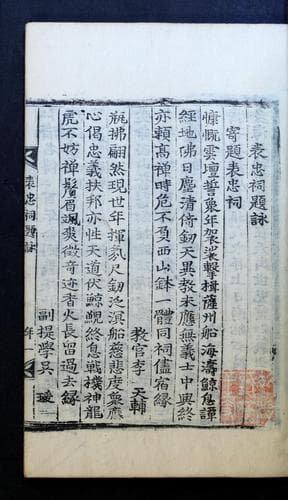 表忠祠題詠
寄題表忠祠
慷慨雲壇誓衆年袈裟擊楫薩州船海濤鯨息譚
經地佛日塵淸倚釰天異教未應無義士中興終
亦賴高禪時危不負西山鉢一體同祠儘宿緣
教官李 天輔
瓶拂翩然現世年揮氛尺釰泛溟船慈悲度衆應
心偈忠義扶邦亦性天道伏鯨鯢終息戰撲神龍
虎不妨禪鬚眉颯爽徵奇迹香火長留過去緣
副提學吳 瑗
表忠祠題詠